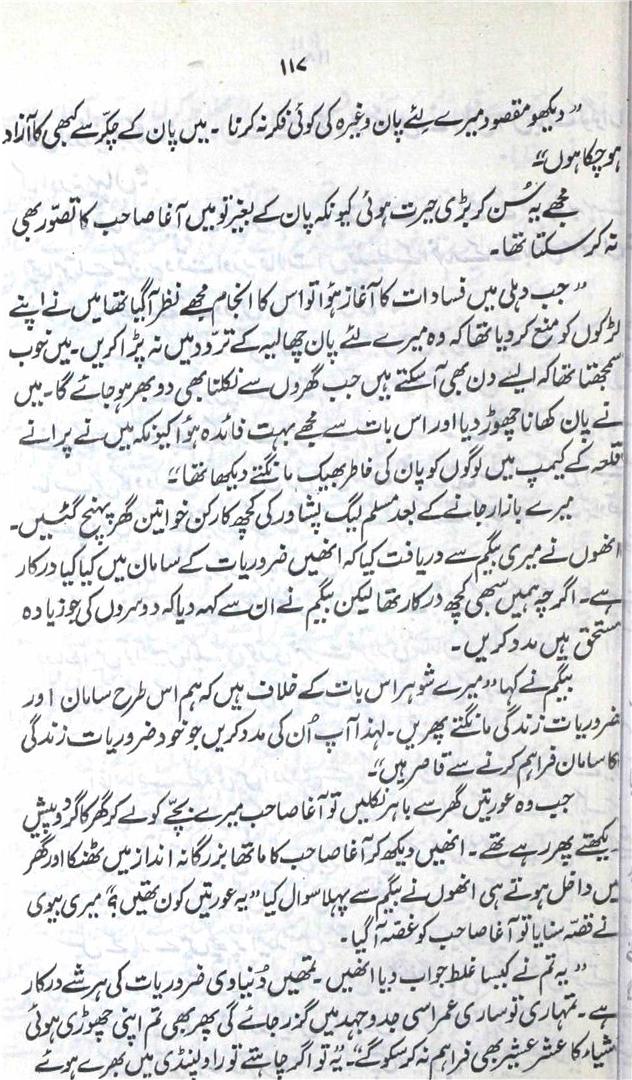 ۱۱۷
”دیکھو مقصود میرے لئے پان وغیرہ کی کوئی فکر نہ کرنا ۔ میں پان کے چکر سے کبھی کا آزاد
ہو چکا ہوں“
مجھے یہ سُن کر بڑی حیرت ہوئی کیونکہ پان کے بغیر تو میں آغا صاحب کا تصوّر بھی
نہ کر سکتا تھا۔
”جب دہلی میں فسادات کا آغاز ہؤا تو اس کا انجام مجھے نظر آ گیا تھا میں نے اپنے
لڑکوں کو منع کر دیا تھا کہ وہ میرے لئے پان چھالیہ کے تردّد میں نہ پڑا کریں۔ میں خوب
سمجھتا تھا کہ ایسے دن بھی آ سکتے ہیں جب گھروں سے نکلنا بھی دوبھر ہو جائے گا۔ میں
نے پان کھانا چھوڑ دیا اور اس بات سے مجھے بہت فائدہ ہؤا کیونکہ میں نے پرانے
قلعہ کے کیمپ میں لوگوں کو پان کی خاطر بھیک مانگتے دیکھا تھا“
میرے بازار جانے کے بعد مسلم لیگ پشاور کی کچھ کارکن خواتین گھر پہنچ گئیں۔
انھوں نے میری بیگم سے دریافت کیا کہ انھیں ضروریات کے سامان میں کیا کیا درکار
ہے۔ اگرچہ ہمیں سبھی کچھ درکار تھا لیکن بیگم نے ان سے کہہ دیا کہ دوسروں کی جو زیادہ
مستحق ہیں مدد کریں ۔
بیگم نے کہا ”میرے شوہر اس بات کے خلاف ہیں کہ ہم اس طرح سامان اور
ضروریات زندگی مانگتے پھریں۔ لہٰذا آپ اُن کی مدد کریں جو خود ضروریات زندگی
کا سامان فراہم کرنے سے قاصر ہیں“
جب وہ عورتیں گھر سے باہر نکلیں تو آغا صاحب میرے بچّے کو لے کر گھر کا گردوپیش
دیکھتے پھر رہے تھے۔ انھیں دیکھ کر آغا صاحب کا ماتھا بزرگانہ انداز میں ٹھنکا اور گھر
میں داخل ہوتے ہی انھوں نے بیگم سے پہلا سوال کیا ”یہ عورتیں کون تھیں؟“ میری بیوی
نے قصّہ سنایا تو آغا صاحب کو غصّہ آ گیا۔
”یہ تم نے کیسا غلط جواب دیا انھیں ۔ تمھیں دُنیاوی ضروریات کی ہر شے درکار
ہے۔ تمہاری تو ساری عمر اسی جدوجہد میں گزر جائے گی پھر بھی تم اپنی چھوڑی ہوئی
اشیاء کا عشر عشیر بھی فراہم نہ کر سکو گے“۔ یہ تو اگر چاہتے تو راولپنڈی میں بھرے ہوئے